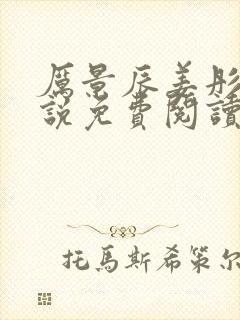 厲景辰姜彤
說免費閱讀
托馬斯希策尔